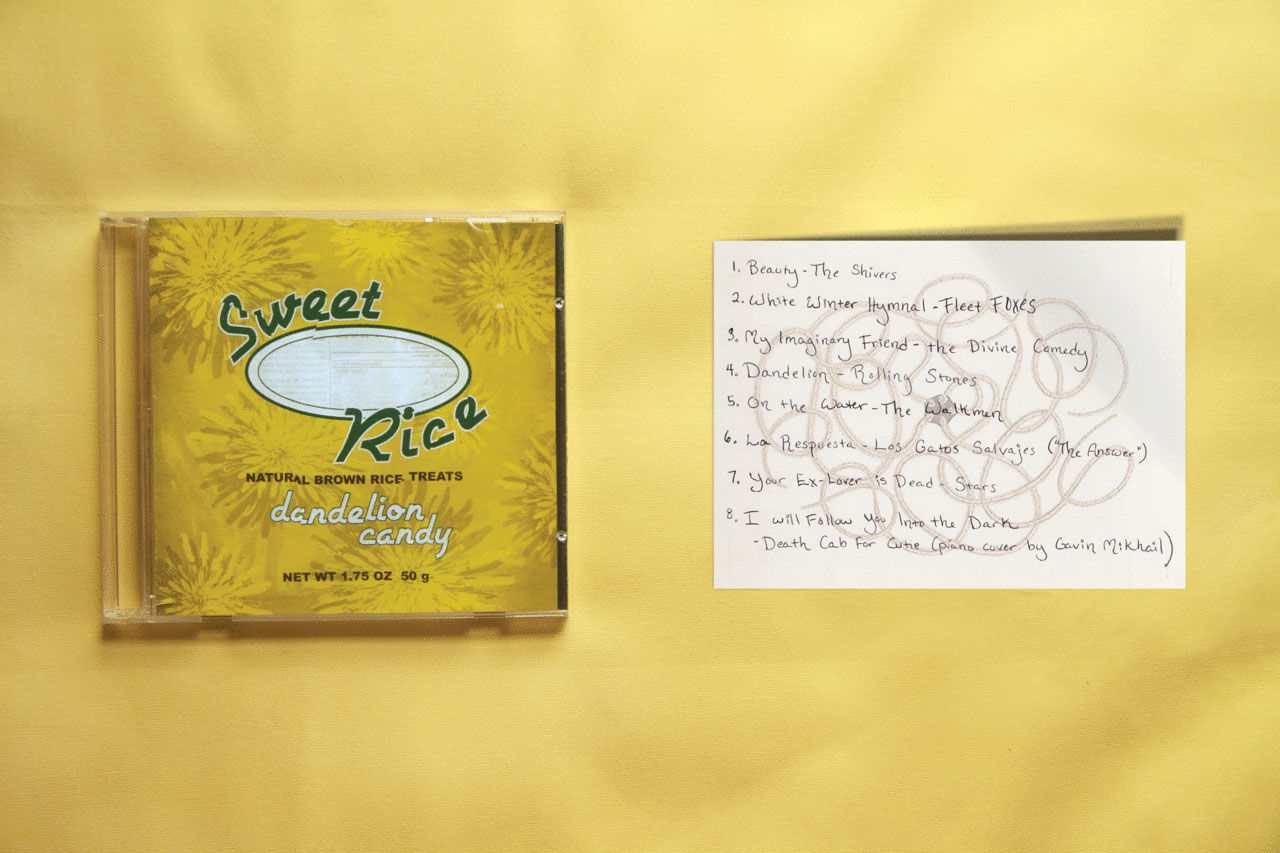 Sweet
Rice
NATURAL BROWN RICE TREATS
dandelion
candy
NET WT 1.75 OZ 50 g
1. Beauty - The Shivers
2. White Winter Hymnal - Fleet Foxes
3. My Imaginary Friend - the Divine Comedy
4. Dandelion - Rolling Stones
5. On the Water - The Walkmen
6. La Respuesta - Los Gatos Salvajes ("The Answer")
7. Your Ex-Lover is Dead - Stars
8. I will Follow You Into the Dark
- Death Cab For Cutie (piano cover by Gavin Mikhail)